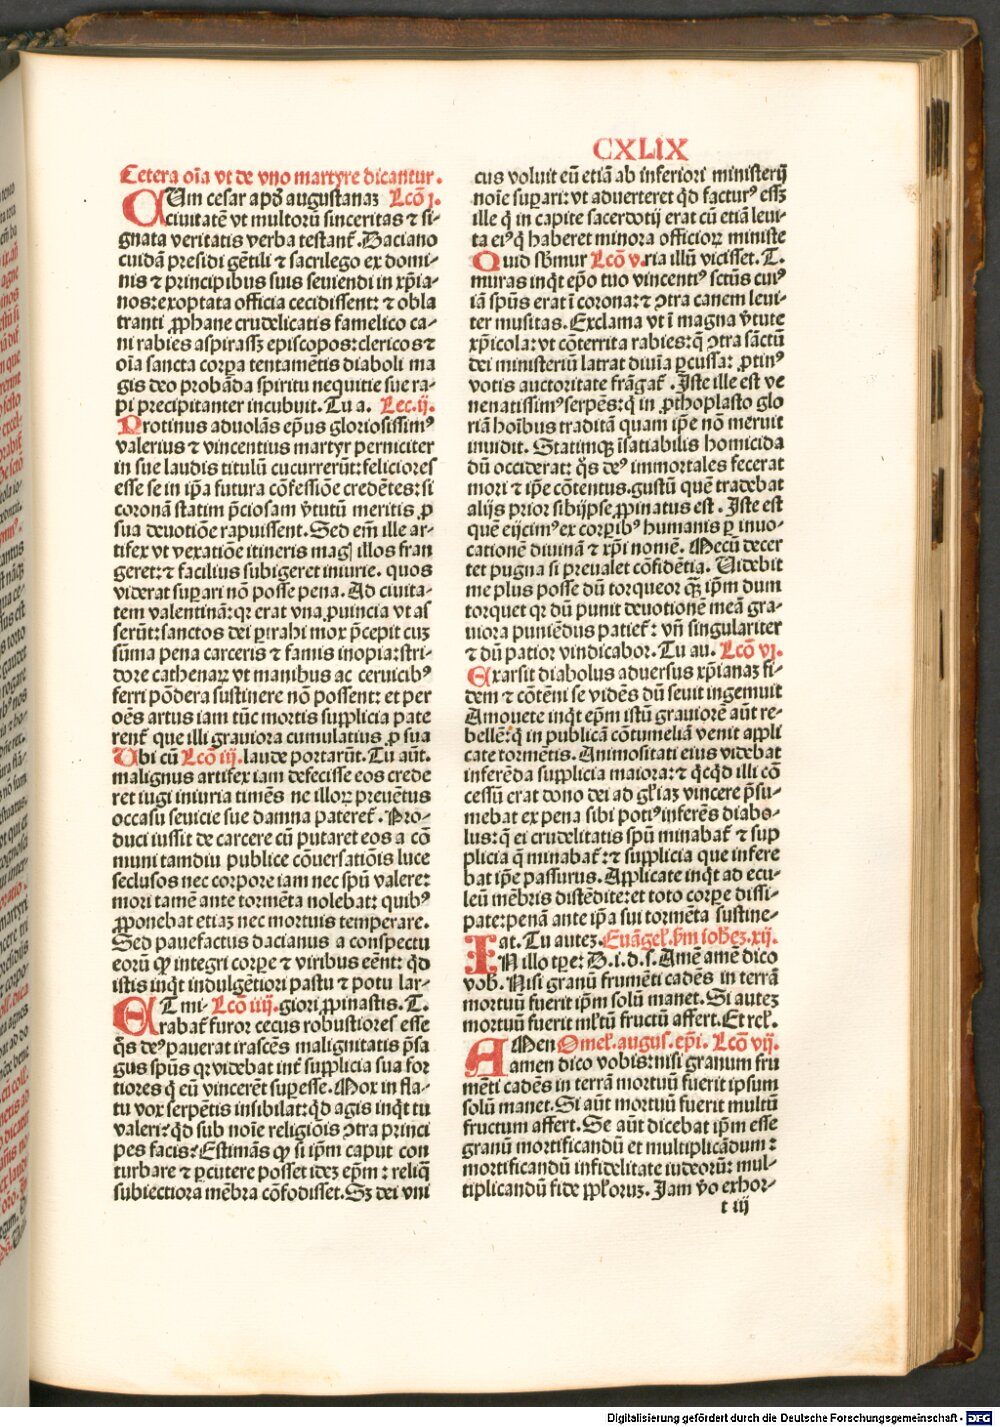 CXLIX
Cetera oīa vt de vno martyre dicantur.
CUm cesar apd̄ augustanaꝫ Lcō j.
ciuitatē vt multorū sinceritas ⁊ si-
gnata veritatis verba testant᷑. Daciano
cuidā presidi gētili ⁊ sacrilego ex domi-
nis ⁊ principibus suis seuiendi in xp̄ia-
nos: exoptata officia cecidissent: ⁊ obla
tranti ꝓphane crudelicatis famelico ca-
ni rabies aspirassꝫ episcopos: clericos ⁊
oīa sancta corꝑa tentamētis diaboli ma
gis deo probāda spiritu nequitie sue ra-
pi precipitanter incubuit. Tu a. Lec. ij.
Protinus aduolās ep̄us gloriosissimꝰ
valerius ⁊ vincentius martyr perniciter
in sue laudis titulū cucurrerūt: feliciores
esse se in ip̄a futura cōfessiōe credētes: si
coronā statim p̄ciosam v̄tutū meritis ꝓ
sua deuotiōe rapuissent. Sed em̄ ille ar-
tifex vt vexatiōe itineris magꝭ illos fran
geret: ⁊ facilius subigeret iniurie. quos
viderat suꝑari nō posse pena. Ad ciuita-
tem valentinā: qꝛ erat vna ꝓuincia vt as
serūt: sanctos dei ꝑtrahi mox p̄cepit cuꝫ
sūma pena carceris ⁊ famis inopia: stri-
dore cathenaꝝ vt manibus ac ceruicibꝰ
ferri pōdera sustinere nō possent: et per
oēs artus iam tūc mortis supplicia pate
rent᷑ que illi grauiora cumulatius ꝓ sua
Ubi cū Lcō iij. laude portarūt. Tu aūt.
malignus artifex iam defecisse eos crede
ret iugi iniuria timēs ne illoꝝ preuētus
occasu seuicie sue damna pateret᷑. Pro-
duci iussit de carcere cū putaret eos a cō
muni tamdiu publice cōuersatiōis luce
seclusos nec corpore iam nec spū valere:
mori tamē ante tormēta nolebat: quibꝰ
ꝓponebat etiaꝫ nec mortuis temperare.
Sed pauefactus dacianus a conspectu
eorū qꝙ integri corꝑe ⁊ viribus eēnt: qd̄
istis inqt indulgētiori pastu ⁊ potu lar-
ET mi- Lcō iiij. giori ꝓpinastis. T.
rabat᷑ furor cecus robustiores esse
q̄s deꝰ pauerat irascēs malignitatis p̄sa
gus spūs qꝛ videbat int᷑ supplicia sua for
tiores q̄ cū vincerēt suꝑesse. Mox in fla-
tu vox serpētis insibilat: qd̄ agis inqt tu
valeri? qd̄ sub noīe religiōis ↄtra princi
pes facis? Estimās qꝙ si ip̄m caput con
turbare ⁊ ꝑcutere posset ideꝫ ep̄m: reliq̄
subiectiora mēbra cōfodisset. Sꝫ dei vni
cus voluit eū etiā ab inferiori ministerij
noīe suꝑari: vt aduerteret qd̄ facturꝰ essꝫ
ille q̄ in capite sacerdotij erat cū etiā leui-
ta eiꝰ q̄ haberet minora officioꝝ ministe
Quid sb̄mur Lcō v. ria illū vicisset. T.
muras inqt ep̄o tuo vincentiꝰ sctūs cuiꝰ
iā spūs erat ī corona: ⁊ ↄtra canem leui-
ter musitas. Exclama vt ī magna v̄tute
xp̄icola: vt cōterrita rabies: q̄ ↄtra sāctū
dei ministeriū latrat diuīa ꝑcussa: ꝓtinꝰ
votis auctoritate frāgat᷑. Iste ille est ve
nenatissimꝰ serpēs: q̄ in ꝓthoplasto glo
riā hoībus traditā quam ip̄e nō meruit
inuidit. Statimqꝫ īsatiabilis homicida
dū occiderat: q̄s deꝰ immortales fecerat
mori ⁊ ip̄e cōtentus. gustū quē tradebat
alijs prior sibijpse ꝓpinatus est. Iste est
quē eijcimꝰ ex corꝑibꝰ humanis ꝑ inuo-
cationē diuinā ⁊ xp̄i nomē. Mecū decer
tet pugna si preualet cōfidētia. Uidebit
me plus posse dū torqueor qꝫ ip̄m dum
torquet qꝛ dū punit deuotionē meā gra-
uiora puniēdus patiet᷑: vn̄ singulariter
⁊ dū patior vindicabor. Tu au. Lcō vj.
Exarsit diabolus aduersus xp̄ianaꝫ fi-
dem ⁊ cōtēni se vidēs dū seuit ingemuit
Amouete inqt ep̄m istū grauiorē aūt re-
bellē: q̄ in publicā cōtumeliā venit appli
cate tormētis. Animositati eius videbat
inferēda supplicia maiora: ⁊ qcqd̄ illi cō
cessū erat dono dei ad gl̄iaꝫ vincere p̄su-
mebat ex pena sibi potiꝰ inferēs diabo-
lus: q̄ ei crudelitatis spū minabat᷑ ⁊ sup
plicia q̄ minabat᷑: ⁊ supplicia que infere
bat ip̄e passurus. Applicate inqt ad ecu-
leū mēbris distēdite: et toto corꝑe dissi-
pate: penā ante ip̄a sui tormēta sustine-
at. Tu auteꝫ. Euāgeł. s̄m ioh̄eꝫ. xij.
IN illo tꝑe: D. i. d. s. Amē amē dico
vob̄. Nisi granū frumēti cadēs in terrā
mortuū fuerit ip̄m solū manet. Si auteꝫ
mortuū fuerit ml̄tū fructū affert. Et reł.
AMen Omeł. augus. ep̄i. Lcō vij.
amen dico vobis: nisi granum fru
mēti cadēs in terrā mortuū fuerit ipsum
solū manet. Si aūt mortuū fuerit multū
fructum affert. Se aūt dicebat ip̄m esse
granū mortificandū et multiplicādum:
mortificandū infidelitate iudeorū: mul-
tiplicandū fide ppl̄oruꝫ. Iam v̄o exhor-
t iij
Digitalisierung gefördert durch die Deutsche Forschungsgemeinschaft - DFG